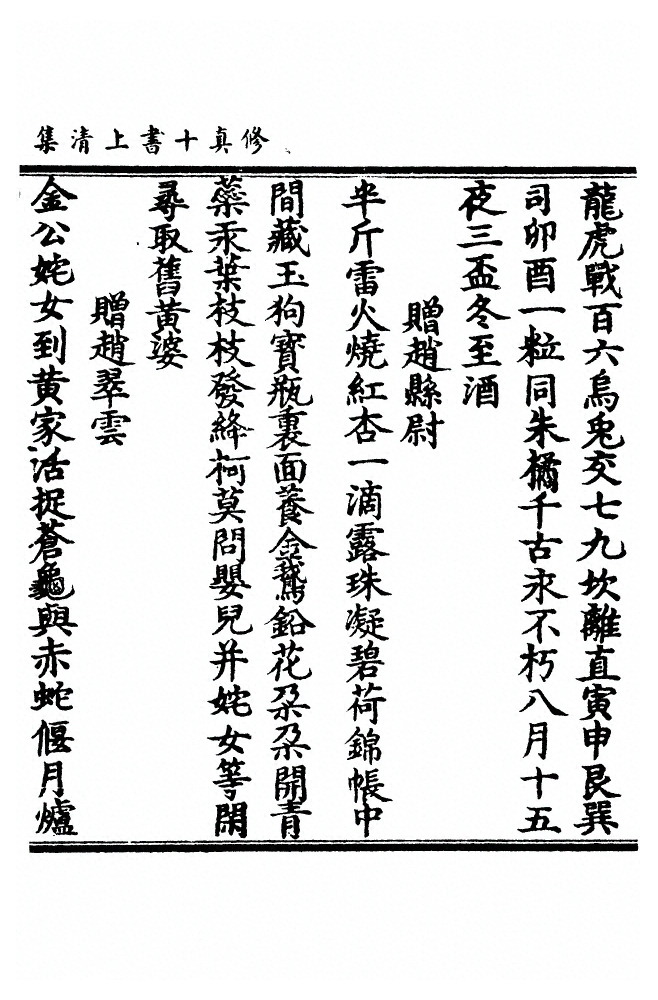 修真十書上清集
龍虎戰百六烏兎交七九坎離直寅申艮巽
司卯酉一粒同朱橘千古永不朽八月十五
夜三盃冬至酒
贈趙縣尉
半斤雷火燒紅杏一滴露珠凝碧荷錦帳中
間藏玉狗寶瓶裏面養金鵞鉛花朶朶開青
蘂汞葉枝枝發絳柯莫問嬰兒并姹女等閑
尋取舊黄婆
贈趙翠雲
金公姹女到黄家活捉蒼龜與赤蛇偃月爐